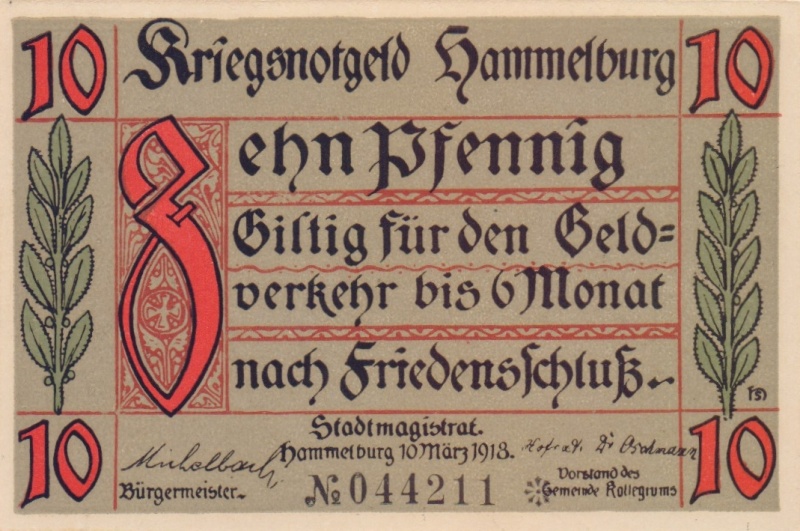 10 Kriegsnotgeld Hammelburg 10
Zehn Pfennig
Giltig für den Geld=
verkehr bis 6 Monat
nach Friedensschluß.
Stadtmagistrat.
Hammelburg 10 März 1918.
Michelbach
Hofrat Dr
Bürgermeister.
№ 044211
Vorstand des
Gemeinde Kollegiums
10 10